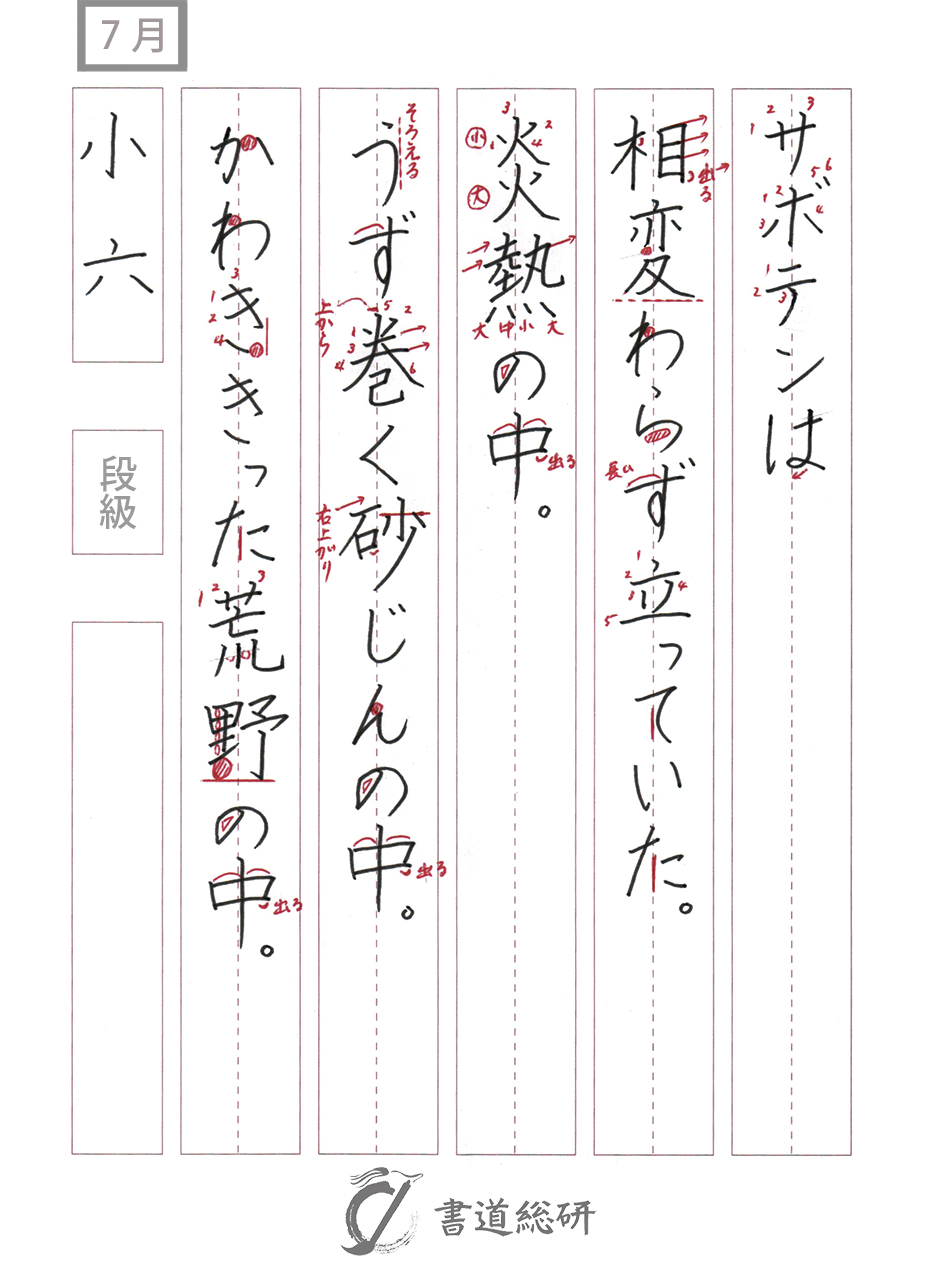 7月
サボテンは
相変わらず立っていた。
出る
長い
炎熱の中。
小
大
大中小大
出る
うず巻く砂じんの中。
そろえる
上から
右上がり
出る
かわききった荒野の中。
出る
小六
段級
書道総研